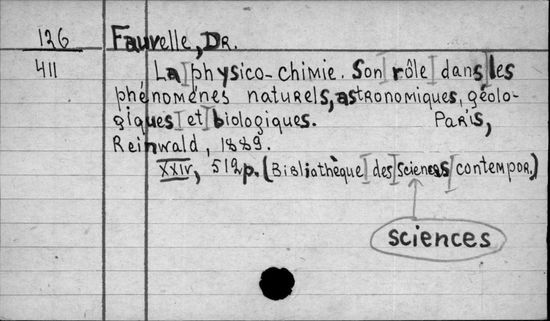 136 Fauvelle, Dr.
411 La physico-chimie. Son rôle dans les
phénomènes naturels, astronomiques, géolo-
giques et biologiques. Paris,
Reinwald, 1889.
XXIV, 512p. (Bibliothèque des scienсes contempor.)
sciences